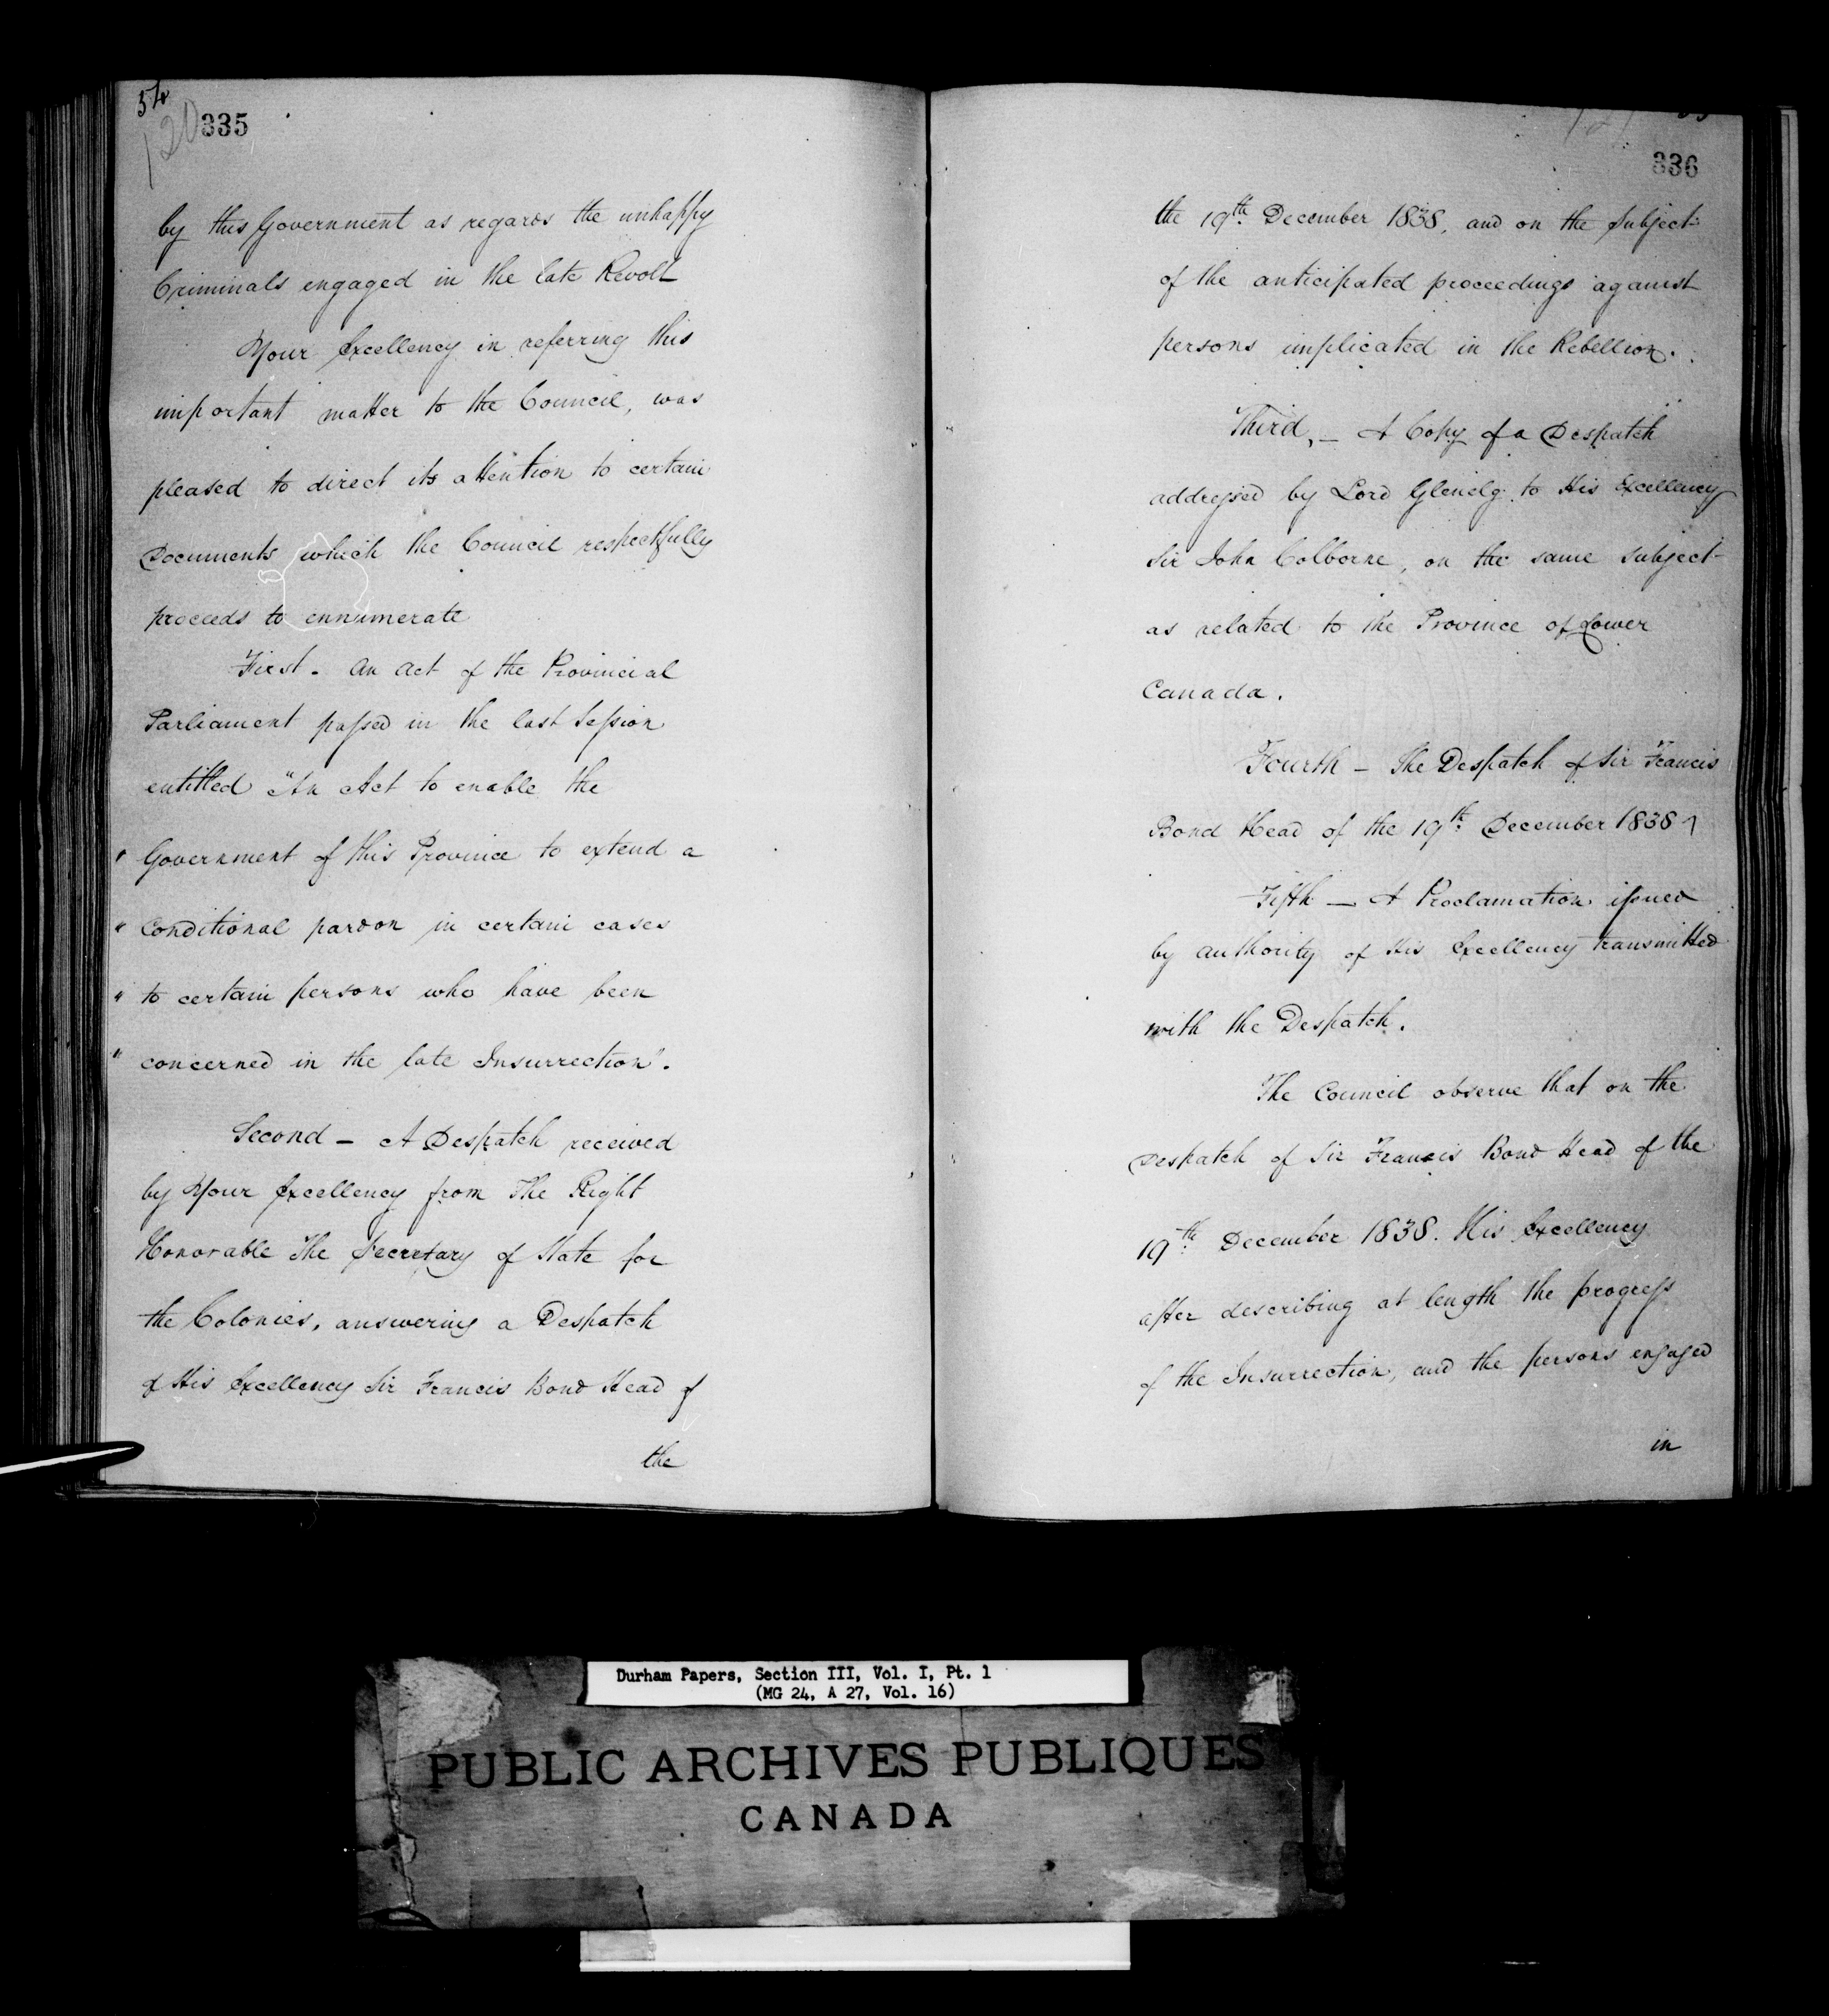 54
120
335
by this Government as regards the unhappy
Criminals engaged in the late Revolt
Your Excellency in referring this
important matter to the Council, was
pleased to direct its attention to certain
Documents which the Council respectfully
proceeds to ennumerate
First. An Act of the Provincial
Parliament passed in the last Session
entitled "An Act to enable the
" Government of this Province to extend a
" Conditional pardon in certain cases
" to certain persons who have been
" concerned in the late Insurrection".
Second – A Despatch received
by Your Excellency from The Right
Honorable The Secretary of State for
the Colonies, answering a Despatch
of His Excellency Sir Francis Bond Head of
the
336
the 19th December 1838, and on the Subject
of the anticipated proceedings against
persons implicated in the Rebellion.
Third, – A Copy of a Despatch
addressed by Lord Glenelg to His Excellency
Sir John Colborne, on the same subject
as related to the Province of Lower
Canada.
Fourth – The Despatch of Sir Francis
Bond Head of the 19th December 1838
Fifth – A Proclamation issued
by authority of His Excellency transmitted
with the Despatch.
The Council observe that on the
Despatch of Sir Francis Bond Head of the
19th December 1838. His Excellency
after describing at length the progress
of the Insurrection, and the persons engaged
in
Durham Papers, Section III, Vol. I, Pt. 1
(MG 24, A 27, Vol. 16)
PUBLIC ARCHIVES PUBLIQUES
CANADA